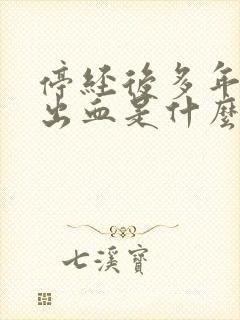 停经後多年
出血是什麼
七溪寶